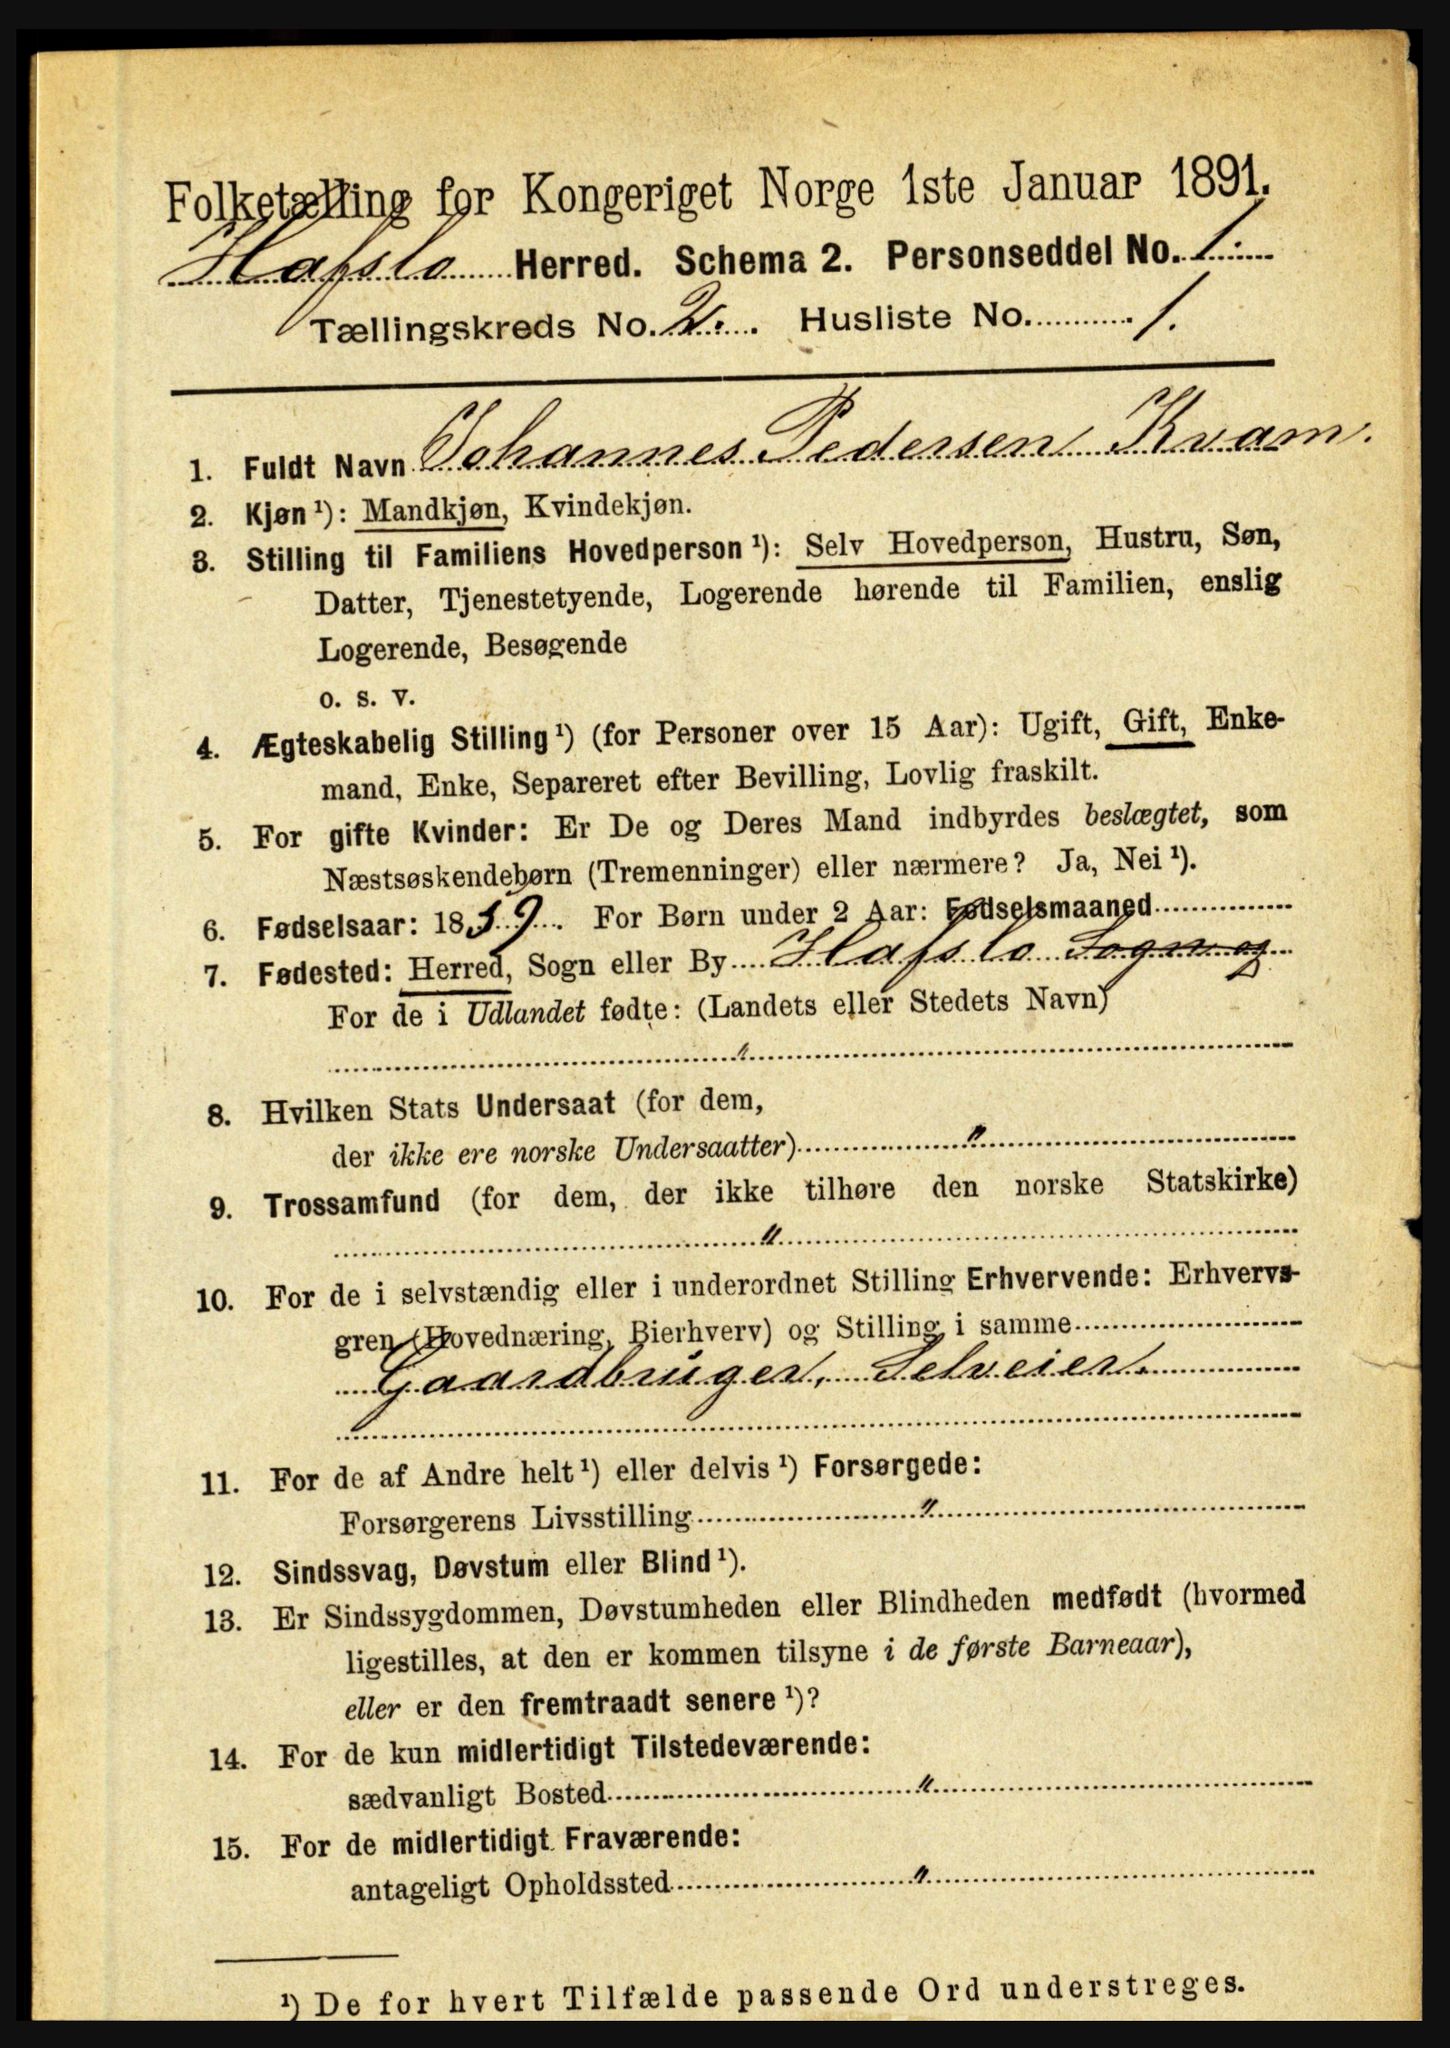 Folketælling for Kongeriget Norge 1ste Januar 1891.
Hafslo Herred. Schema 2. Personseddel No. 1.
Tællingskreds No. 2. Husliste No. 1.
1. Fuldt Navn Johannes Pedersen Kvam.
2. Kjøn ¹): Mandkjøn, Kvindekjøn.
3. Stilling til Familiens Hovedperson ¹): Selv Hovedperson, Hustru, Søn,
Datter, Tjenestetyende, Logerende hørende til Familien, enslig
Logerende, Besøgende
o. s. v.
4. Ægteskabelig Stilling ¹) (for Personer over 15 Aar): Ugift, Gift, Enke-
mand, Enke, Separeret efter Bevilling, Lovlig fraskilt.
5. For gifte Kvinder: Er De og Deres Mand indbyrdes beslægtet, som
Næstsøskendebørn (Tremenninger) eller nærmere? Ja, Nei ¹).
6. Fødselsaar: 1859. For Børn under 2 Aar: Fødselsmaaned
7. Fødested: Herred, Sogn eller By Hafslo Sogn og
For de i Udlandet fødte: (Landets eller Stedets Navn)
"
8. Hvilken Stats Undersaat (for dem,
der ikke ere norske Undersaatter) "
9. Trossamfund (for dem, der ikke tilhøre den norske Statskirke)
"
10. For de i selvstændig eller i underordnet Stilling Erhvervende: Erhvervs-
gren (Hovednæring, Bierhverv) og Stilling i samme
Gaardbruger, Selveier.
11. For de af Andre helt ¹) eller delvis ¹) Forsørgede:
Forsørgerens Livsstilling "
12. Sindssvag, Døvstum eller Blind ¹).
13. Er Sindssygdommen, Døvstumheden eller Blindheden medfødt (hvormed
ligestilles, at den er kommen tilsyne i de første Barneaar),
eller er den fremtraadt senere ¹)?
14. For de kun midlertidigt Tilstedeværende:
sædvanligt Bosted "
15. For de midlertidigt Fraværende:
antageligt Opholdssted "
¹) De for hvert Tilfælde passende Ord understreges.